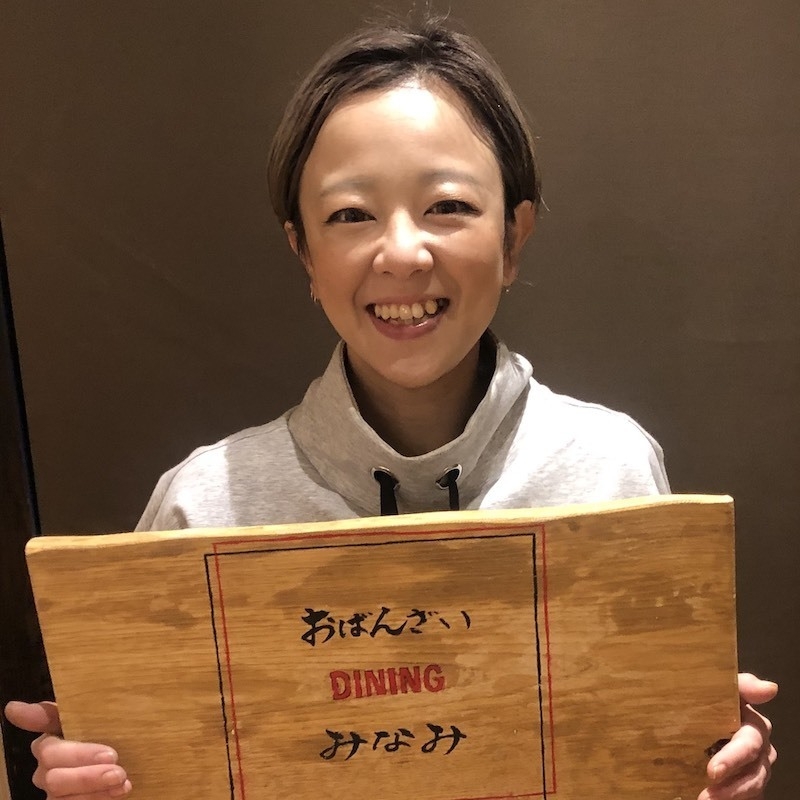 おばんざい
DINING
みなみ